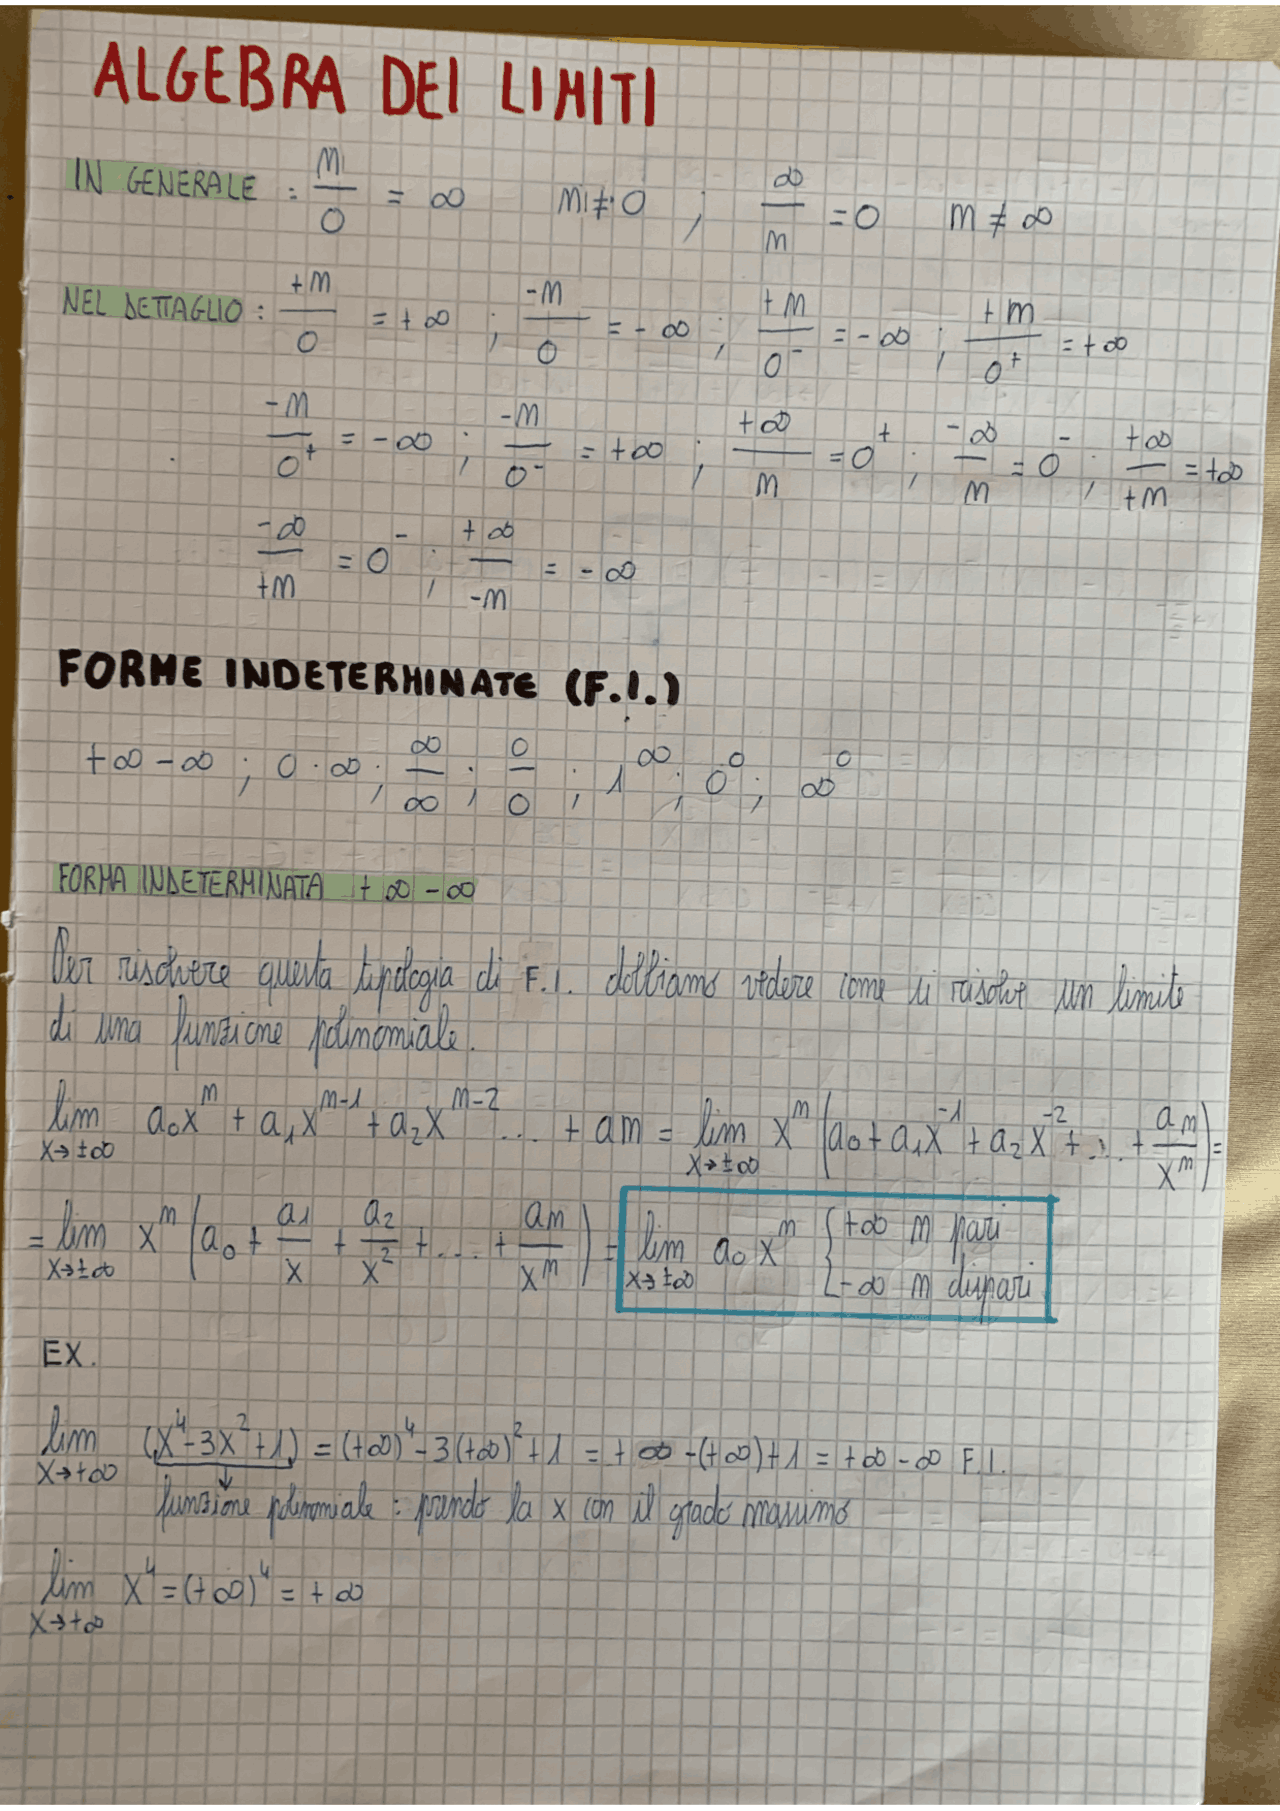 ALGEBRA DEI LIMITI
IN GENERALE : m/0 = ∞ m ≠ 0 ; ∞/m = 0 m ≠ ∞
NEL DETTAGLIO : +m/0 = +∞ ; -m/0 = -∞ ; +m/0⁻ = -∞ ; +m/0⁺ = +∞
-m/0⁺ = -∞ ; -m/0⁻ = +∞ ; +∞/m = 0⁺ ; -∞/m = 0⁻ ; +∞/+m = +∞
-∞/+m = 0⁻ ; +∞/-m = -∞
FORME INDETERMINATE (F.I.)
+∞ -∞ ; 0 · ∞ ; ∞/∞ ; 0/0 ; 1^∞ ; 0^0 ; ∞^0
FORMA INDETERMINATA +∞ -∞
Per risolvere questa tipologia di F.I. dobbiamo vedere come si risolve un limite
di una funzione polinomiale.
lim x→±∞ a₀x^m + a₁x^(m-1) + a₂x^(m-2) ... + am = lim x→±∞ x^m (a₀ + a₁x^-1 + a₂x^-2 + ... + am/x^m) =
= lim x→±∞ x^m (a₀ + a1/x + a2/x² + ... + am/x^m) = lim x→±∞ a₀ x^m { +∞ m pari { -∞ m dispari
EX.
lim x→+∞ (x⁴ - 3x² + 1) = (+∞)⁴ - 3(+∞)² + 1 = +∞ - (+∞) + 1 = +∞ - ∞ F.I.
↓ funzione polinomiale : prendo la x con il grado massimo
lim x→+∞ x⁴ = (+∞)⁴ = +∞